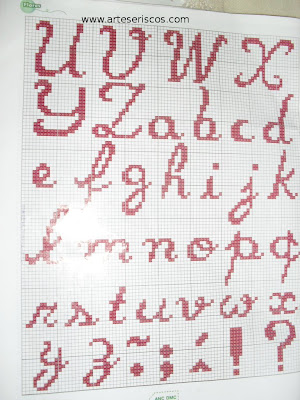 www.arteseriscos.com
U V W X
Y Z a b c d
e f g h i j k
l m n o p q
r s t u v w x
y z ~ ; ´ ! ?
ABC DMC